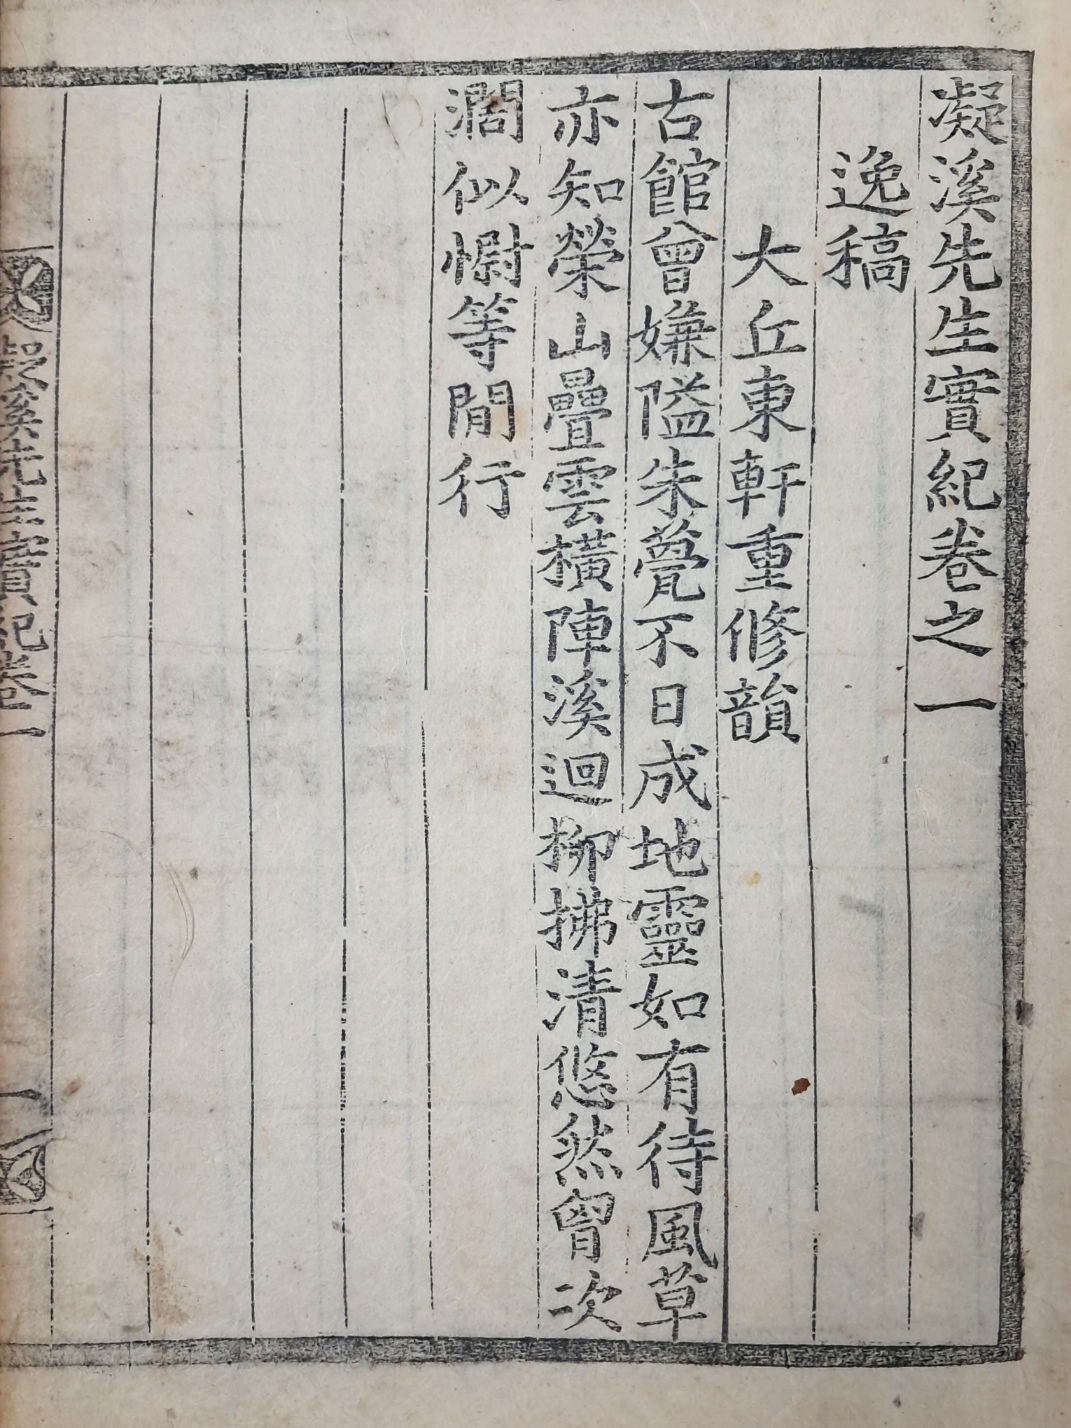 凝溪先生實紀卷之一
逸稿
大丘東軒重修韻
古館曾嫌隘朱甍不日成地靈如有待風草
亦知榮山疊雲橫陣溪迴柳拂清悠然胷次
濶似慰等閒行
凝溪先生實紀卷一
一